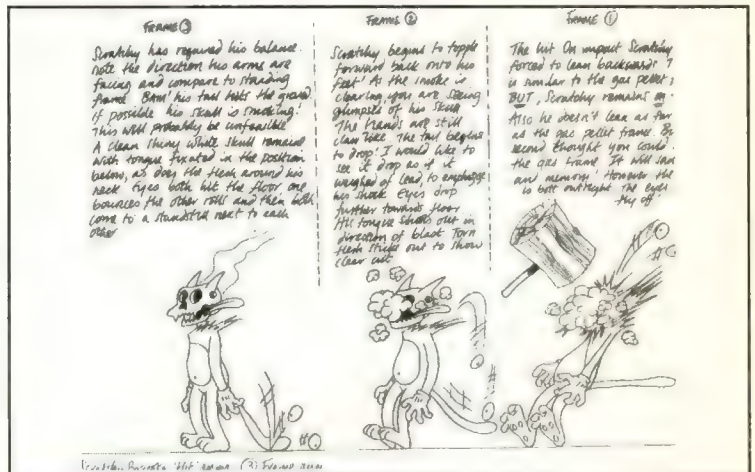 FRAME ③
Scratchy has regained his balance.
note the direction his arms are
facing and compare to standing
frame BAM! his tail hits the ground
if possible his skull is smoking!
This will probably be unfeasible
A clean shiny white skull remains
with tongue fixated in the position
below, as does the flesh around his
neck Eyes both hit the floor one
bounces the other rolls and then both
come to a standstill next to each
other
FRAME ②
Scratchy begins to topple
forward back onto his
feet! As the smoke is
clearing, you are seeing
glimpses of his skull
The hands are still
claw like. The tail begins
to drop! I would like to
see it drop as if it
weighed of lead, to emphasize
his shock Eyes drop
further towards floor
His tongue shoots out in
direction of blast Torn
flesh sticks out to show
clear cut
FRAME ①
The hit On impact Scratchy
forced to lean backwards
is similar to the gas pellet
BUT, Scratchy remains
Also he doesn't lean as far
as the gas pellet frame.
second thought you could
the gas frame It will
and memory! However the
is bolt outright The eyes
fly off!
Scratchy 'hit' (3) Frame